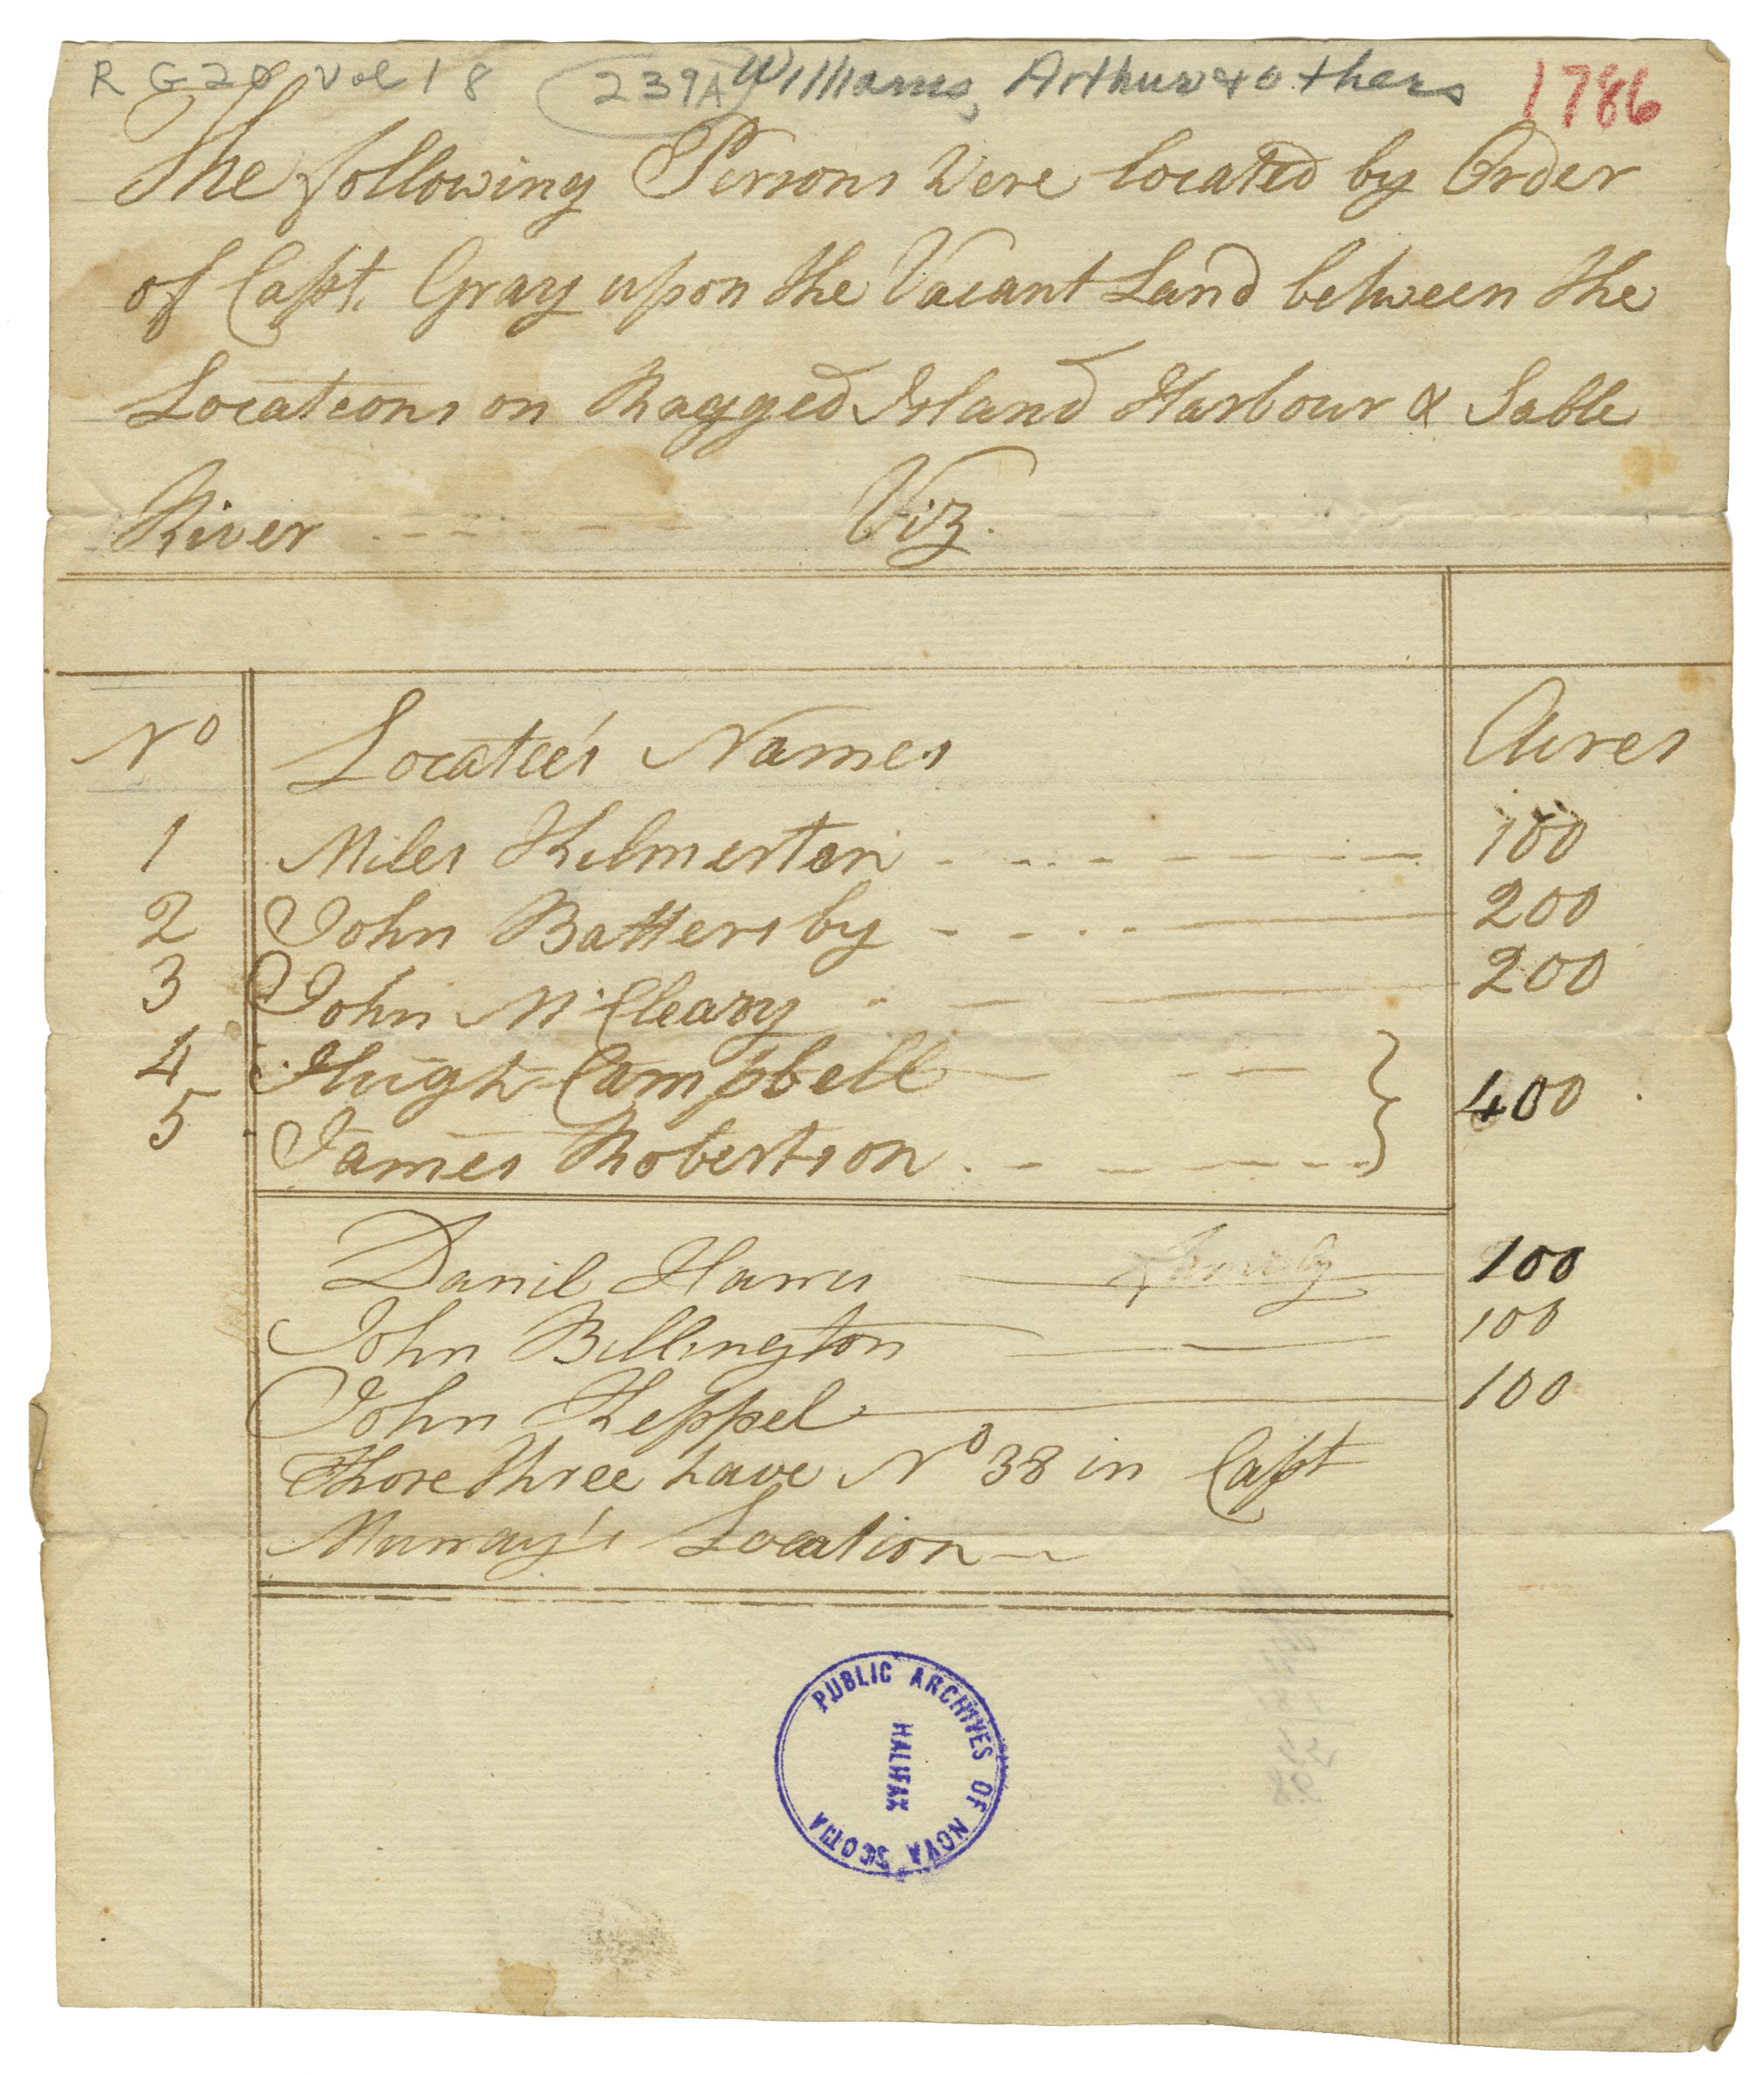 RG 20 Vol 18 239A Williams, Arthur & others 1786
The following Persons Were located by Order
of Capt. Gray upon the Vacant Land between the
Locations on Ragged Island Harbour & Sable
River Viz.
No Locatee's Names Acres
1 Miles Kilmerton 100
2 John Battersby 200
3 John McCleary 200
4 Hugh Campbell
400
5 James Robertson
Danil Harris family 100
John Billington 100
John Keppel 100
Those three have No 38 in Capt
Murray's Location
PUBLIC ARCHIVES OF NOVA SCOTIA
HALIFAX